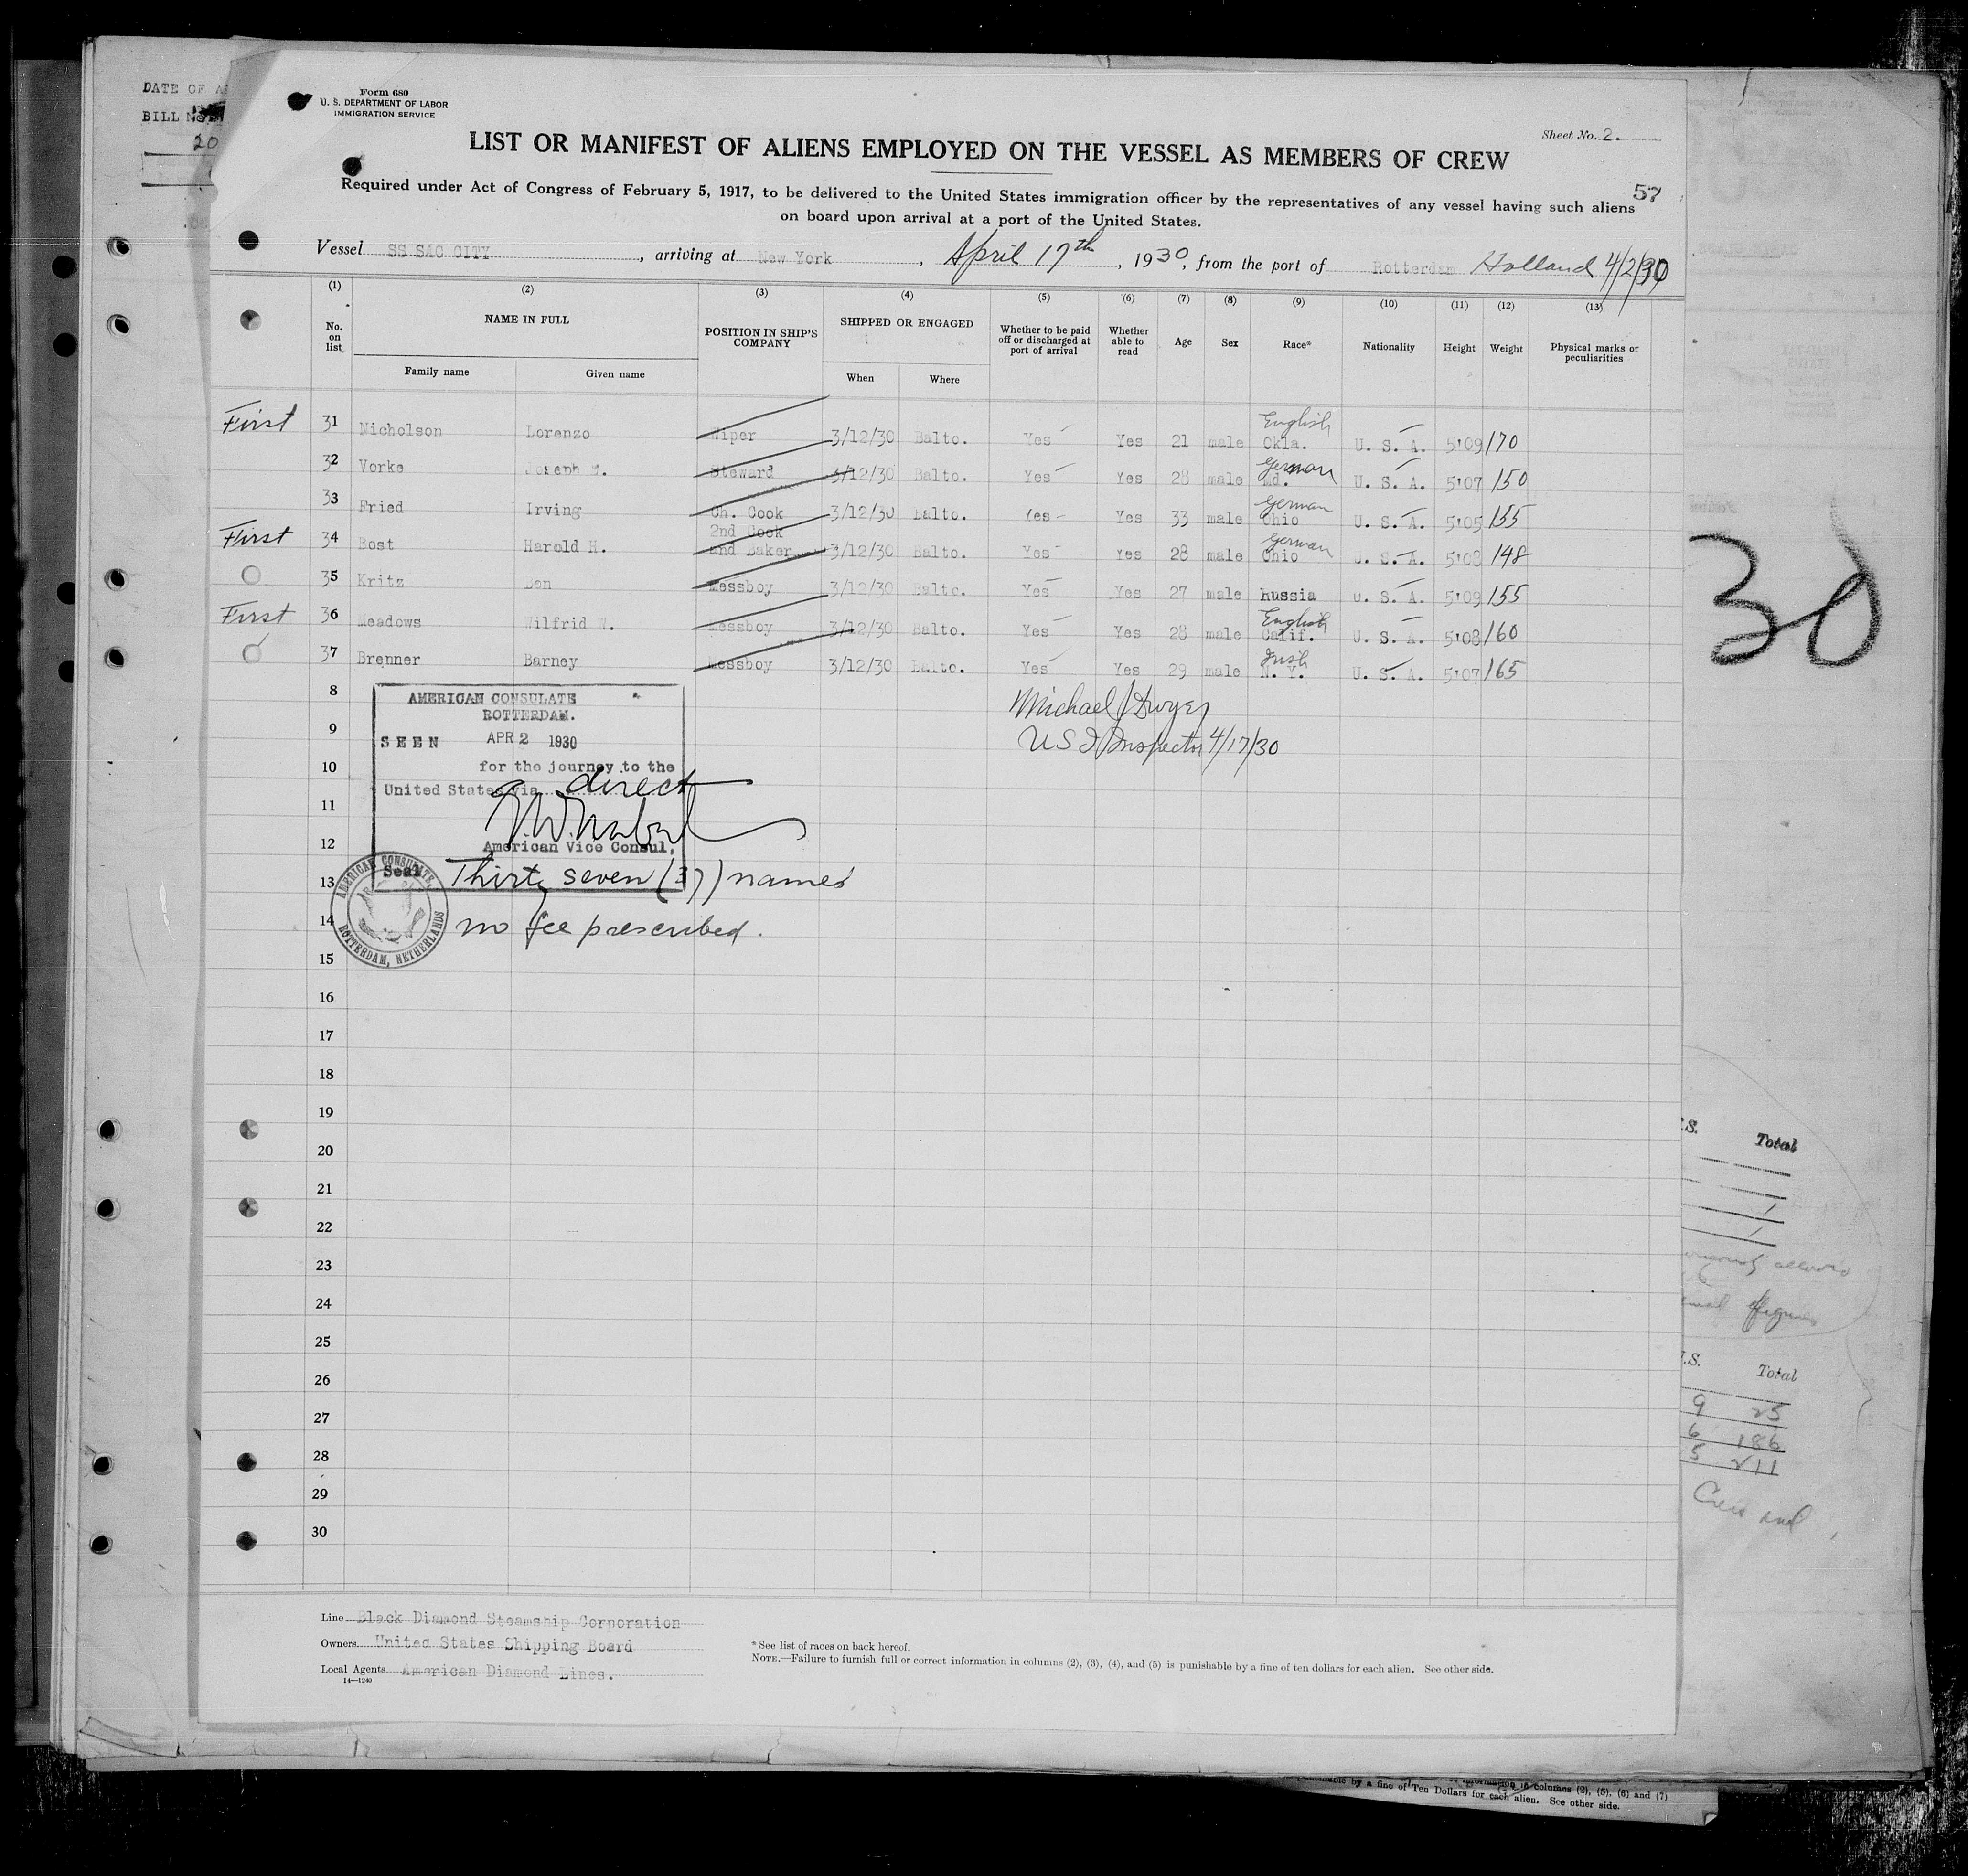 DATE OF
BILL No.
20
Form 680
U. S. DEPARTMENT OF LABOR
IMMIGRATION SERVICE
Sheet No. 2.
LIST OR MANIFEST OF ALIENS EMPLOYED ON THE VESSEL AS MEMBERS OF CREW
57
Required under Act of Congress of February 5, 1917, to be delivered to the United States immigration officer by the representatives of any vessel having such aliens
on board upon arrival at a port of the United States.
Vessel SS SAC CITY, arriving at New York, April 17th, 1930, from the port of Rotterdam Holland 4/2/30
(1) (2) (3) (4) (5) (6) (7) (8) (9) (10) (11) (12) (13)
No. on list NAME IN FULL POSITION IN SHIP'S COMPANY SHIPPED OR ENGAGED Whether to be paid off or discharged at port of arrival Whether able to read Age Sex Race* Nationality Height Weight Physical marks or peculiarities
Family name Given name When Where
First 31 Nicholson Lorenzo Wiper 3/12/30 Balto. Yes Yes 21 male English Okla. U. S. A. 5'09 170
32 Vorke Joseph M. Steward 3/12/30 Balto. Yes Yes 28 male German Md. U. S. A. 5'07 150
33 Fried Irving Ch. Cook 3/12/30 Balto. Yes Yes 33 male German Ohio U. S. A. 5'05 155
First 34 Bost Harold H. 2nd Cook and Baker 3/12/30 Balto. Yes Yes 28 male German Ohio U. S. A. 5'08 148
35 Kritz Ben Messboy 3/12/30 Balto. Yes Yes 27 male Russia U. S. A. 5'09 155
First 36 Meadows Wilfrid W. Messboy 3/12/30 Balto. Yes Yes 28 male English Calif. U. S. A. 5'08 160
37 Brenner Barney Messboy 3/12/30 Balto. Yes Yes 29 male Irish N. Y. U. S. A. 5'07 165
30
8
9
10
11
12
13
14
15
16
17
18
19
20
21
22
23
24
25
26
27
28
29
30
AMERICAN CONSULATE
ROTTERDAM.
SEEN APR 2 1930
for the journey to the
United States via direct
American Vice Consul,
Seal
Thirty seven (37) names
no fee prescribed.
AMERICAN CONSULATE, ROTTERDAM, NETHERLANDS
Michael J Dwyer
US I Inspector 4/17/30
Line Black Diamond Steamship Corporation
Owners United States Shipping Board
Local Agents American Diamond Lines.
14—1240
*See list of races on back hereof.
NOTE.—Failure to furnish full or correct information in columns (2), (3), (4), and (5) is punishable by a fine of ten dollars for each alien. See other side.
.S. Total
allowed
.S. Total
9 25
6 186
5 211
Crew and
columns (2), (5), (6) and (7)
by a fine of Ten Dollars for each alien. See other side.